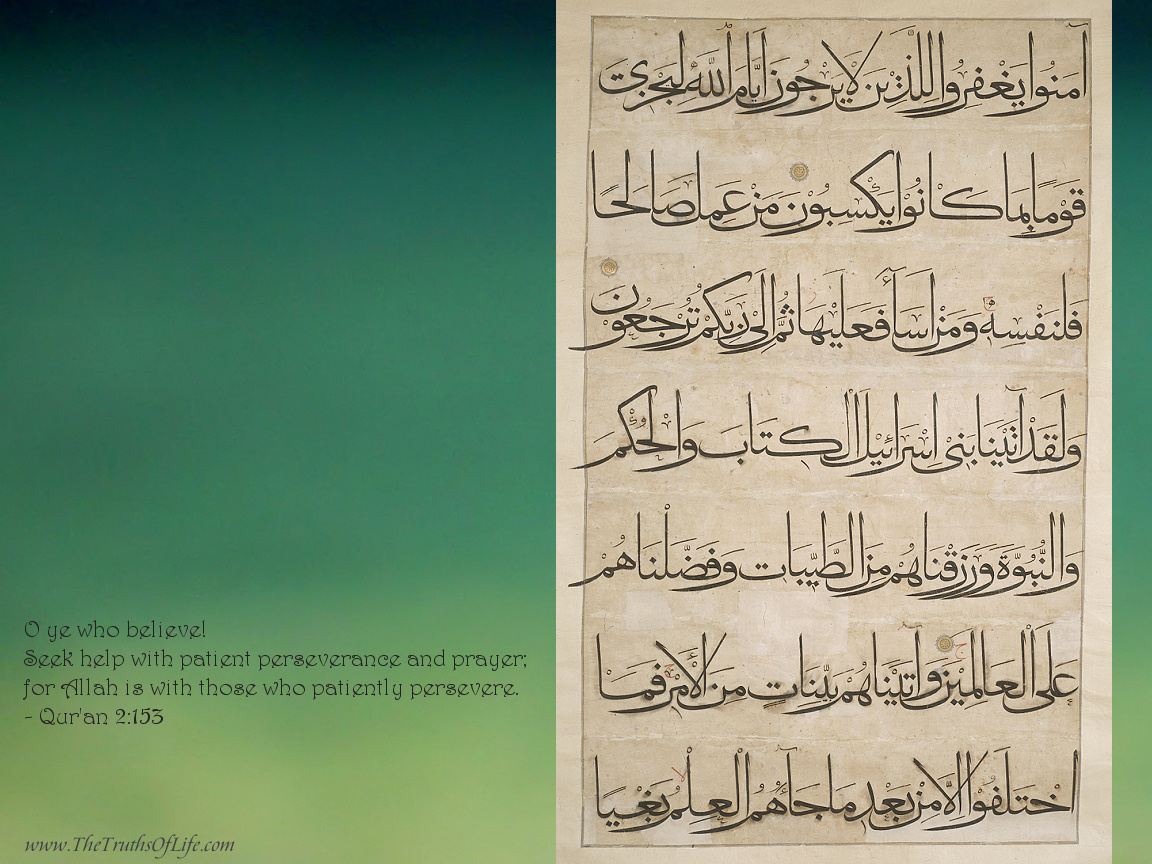 آمنوا يغفروا للذين لا يرجون أيام الله ليجزي
قوما بما كانوا يكسبون من عمل صالحا
فلنفسه ومن اسآء فعليها ثم الى ربكم ترجعون
ولقد آتينا بنى اسرائيل الكتاب والحكم
والنبوة ورزقناهم من الطيبات وفضلناهم
على العالمين وآتيناهم بينات من الامر فما
اختلفوا الا من بعد ما جآءهم العلم بغيا
O ye who believe!
Seek help with patient perseverance and prayer;
for Allah is with those who patiently persevere.
- Qur'an 2:153
www.TheTruthsOfLife.com